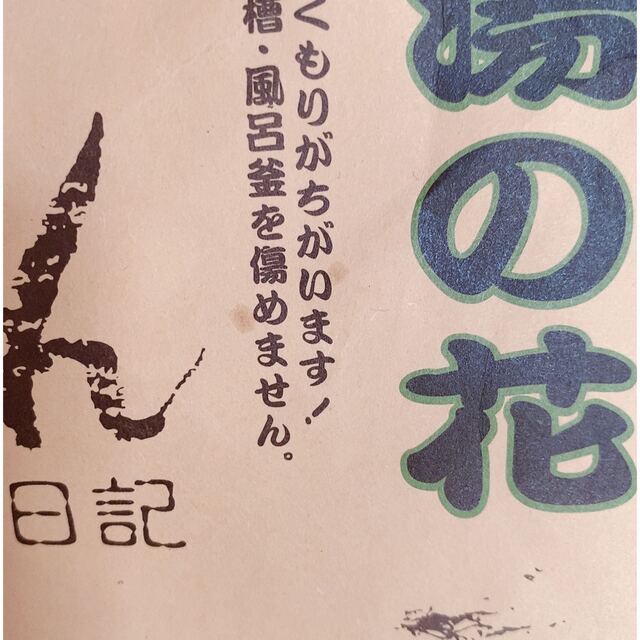 湯の花
くもりがちがいます!
槽・風呂釜を傷めません。
ん
日記